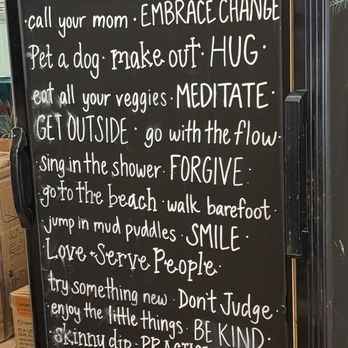 · call your mom · EMBRACE CHANGE
Pet a dog · make out · HUG ·
eat all your veggies · MEDITATE ·
GET OUTSIDE · go with the flow ·
· sing in the shower · FORGIVE ·
· go to the beach · walk barefoot ·
· jump in mud puddles · SMILE ·
· Love + Serve People ·
try something new · Don't Judge ·
· enjoy the little things · BE KIND ·
· skinny dip · PRACTICE